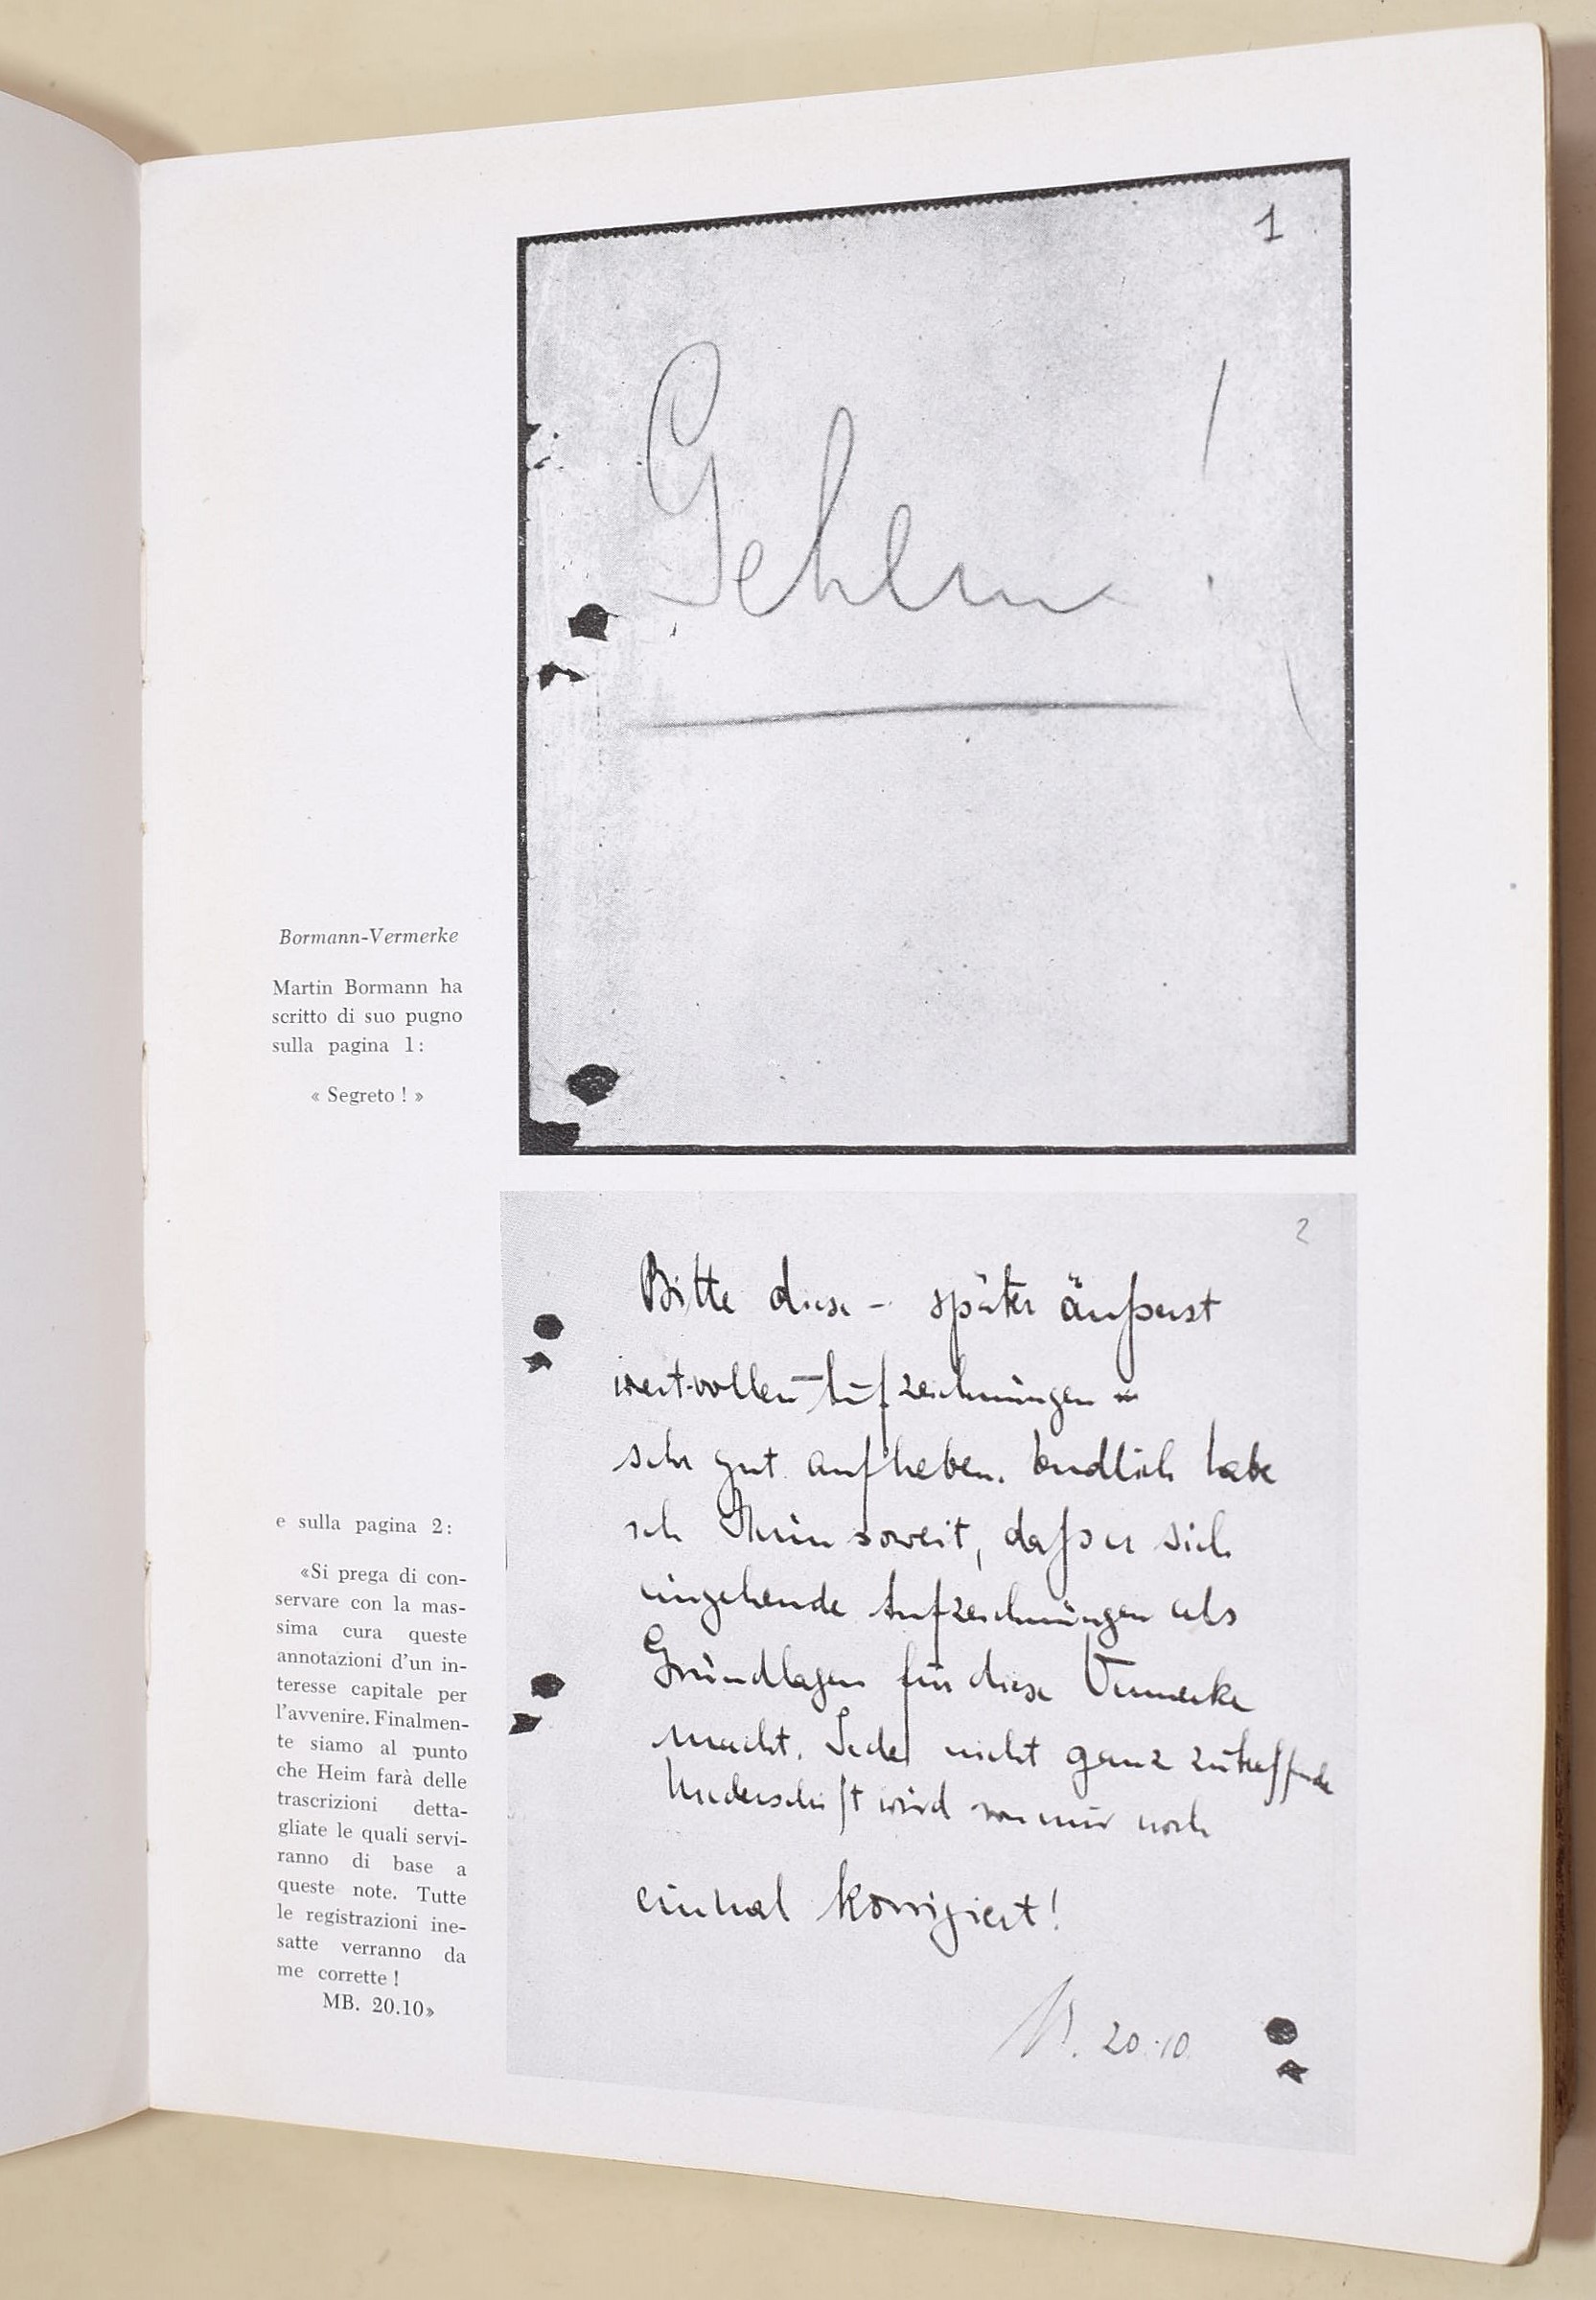 Bormann-Vermerke
Martin Bormann ha
scritto di suo pugno
sulla pagina 1:
« Segreto ! »
1
Geheim !
e sulla pagina 2:
«Si prega di con-
servare con la mas-
sima cura queste
annotazioni d'un in-
teresse capitale per
l'avvenire. Finalmen-
te siamo al punto
che Heim farà delle
trascrizioni detta-
gliate le quali servi-
ranno di base a
queste note. Tutte
le registrazioni ine-
satte verranno da
me corrette !
MB. 20.10»
2
Bitte diese - später äußerst
wertvollen - Aufzeichnungen
sehr gut aufheben. Endlich habe
ich Heim soweit, daß er sich
eingehende Aufzeichnungen als
Grundlagen für diese Vermerke
macht. Jede nicht ganz zutreffende
Niederschrift wird von mir noch
einmal korrigiert!
20.10